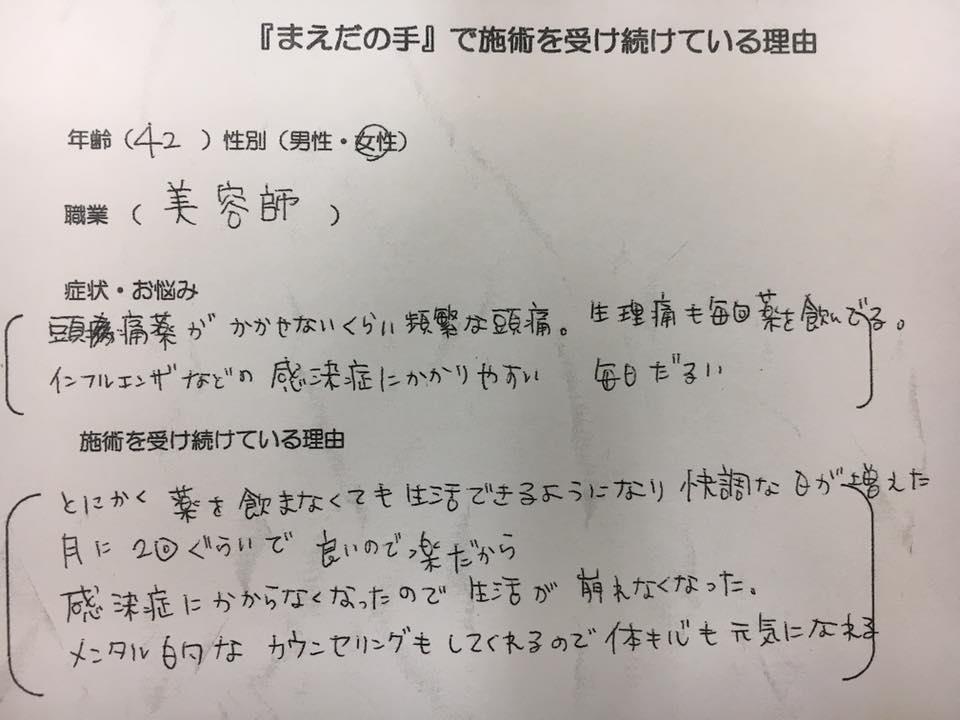 『まえだの手』で施術を受け続けている理由
年齢（42）性別（男性・女性）
職業（美容師）
症状・お悩み
頭痛薬がかかせないくらい頻繁な頭痛。生理痛も毎回薬を飲んでる。
インフルエンザなどの感染症にかかりやすい 毎日だるい
施術を受け続けている理由
とにかく薬を飲まなくても生活できるようになり快調な日が増えた
月に2回ぐらいで良いので楽だから
感染症にかからなくなったので生活が崩れなくなった。
メンタル的なカウンセリングもしてくれるので体も心も元気になれる